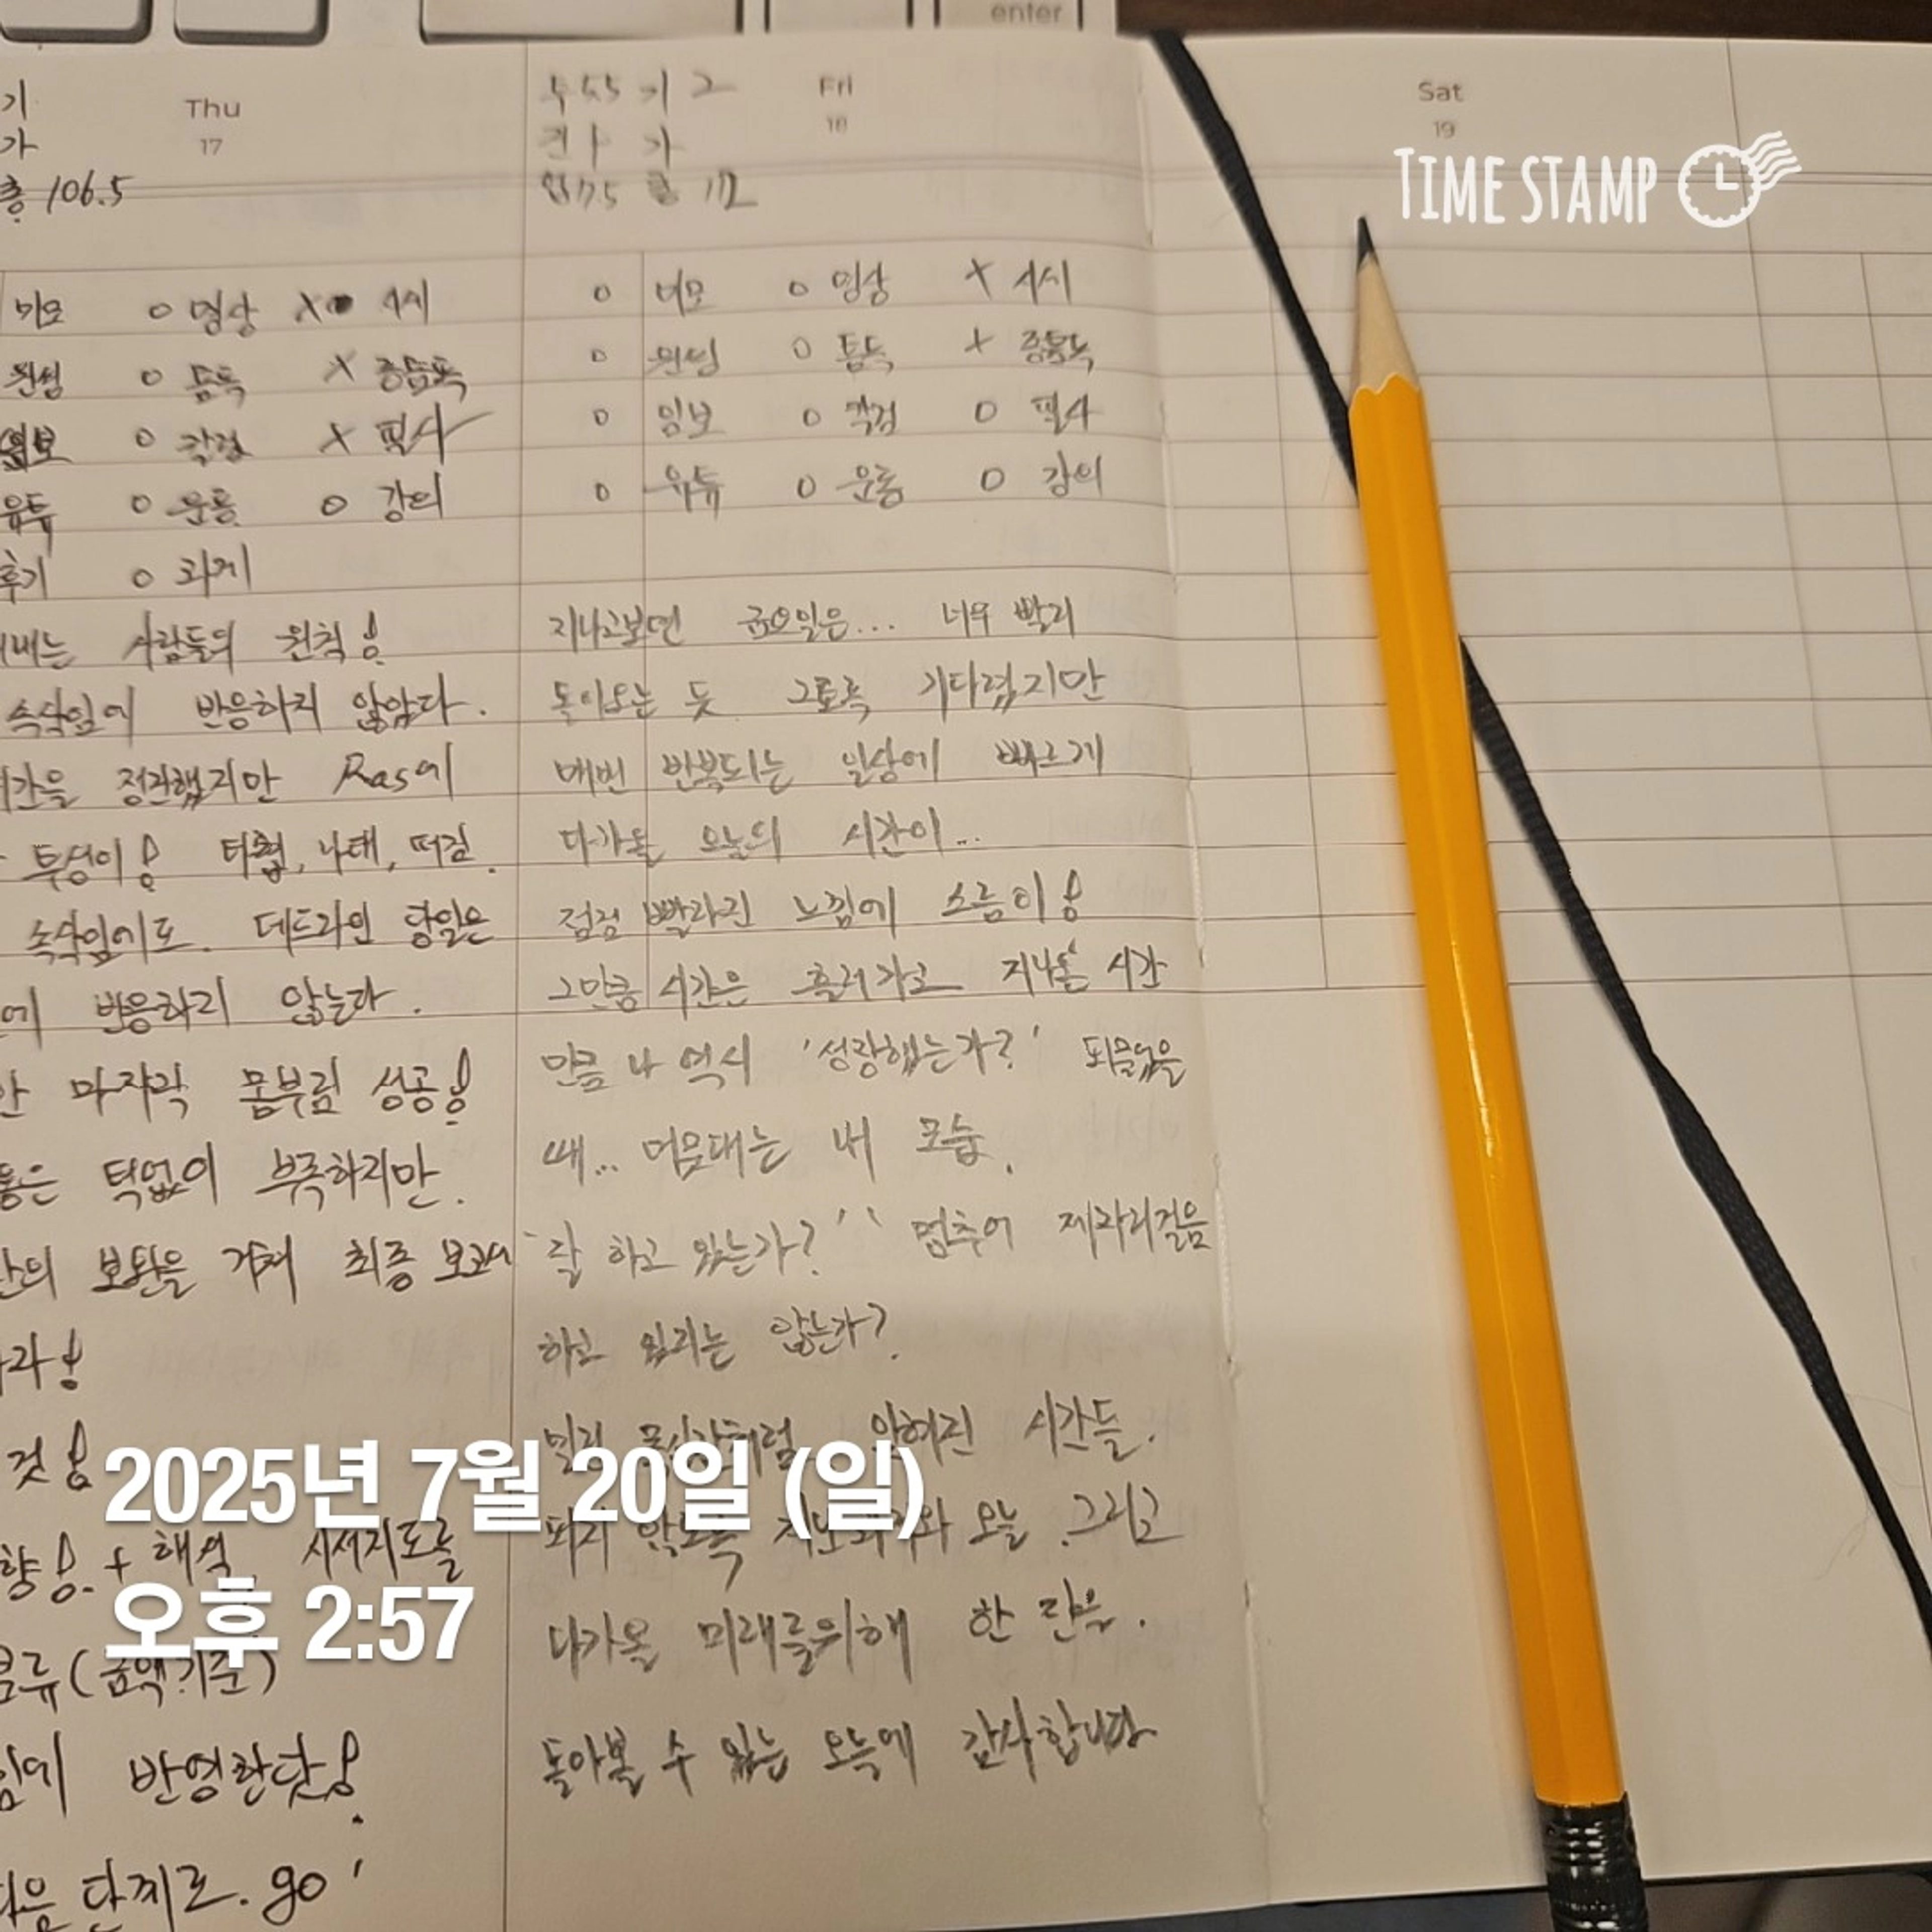 enter
기
가
Thu
17
총 106.5
미모 o 명상 x 시세
원씽 o 틈독 x 종통독
임보 o 칼검 x 필사
유튜 o 운동 o 강의
후기 o 과제
내는 사람들의 원칙!
속삭임에 반응하지 않았다.
시간을 정관했지만 Ras에
투성이! 타협, 나태,
속삭임에도. 데드라인 당일은
에 반응하지 않는다.
마지막 몸부림 성공!
턱없이 부족하지만.
보완을 거쳐 최종 보고서
라!
것!
향! + 해석 시세지도를
분류(금액기준)
에 반영한닷!
다음 단계로. go!
Fri
18
기 2
가
총 112
o 미모 o 명상 x 시세
o 원씽 o 틈독 x 종통독
o 임보 o 칼검 o 필사
o 유튜 o 운동 o 강의
지나고보면 금요일은... 너무 빨리
돌아오는 듯 그토록 기다렸지만
매번 반복되는 일상에 빠르게
다가올 오늘의 시간이...
점점 빨라진 느낌에 소름이!
그만큼 시간은 흘러가고 지나온 시간
만큼 나 역시 '성장했는가?' 되물었을
때... 머뭇대는 내 모습.
'잘 하고 있는가?' ' 멈추어 제자리걸음
하고 있지는 않는가?
시간들.
되지 않도록 오늘 . 그리고
다가올 미래를위해 한 걸음.
돌아볼 수 있는 오늘에 감사합니다
Sat
19
TIME STAMP
2025년 7월 20일 (일)
오후 2:57